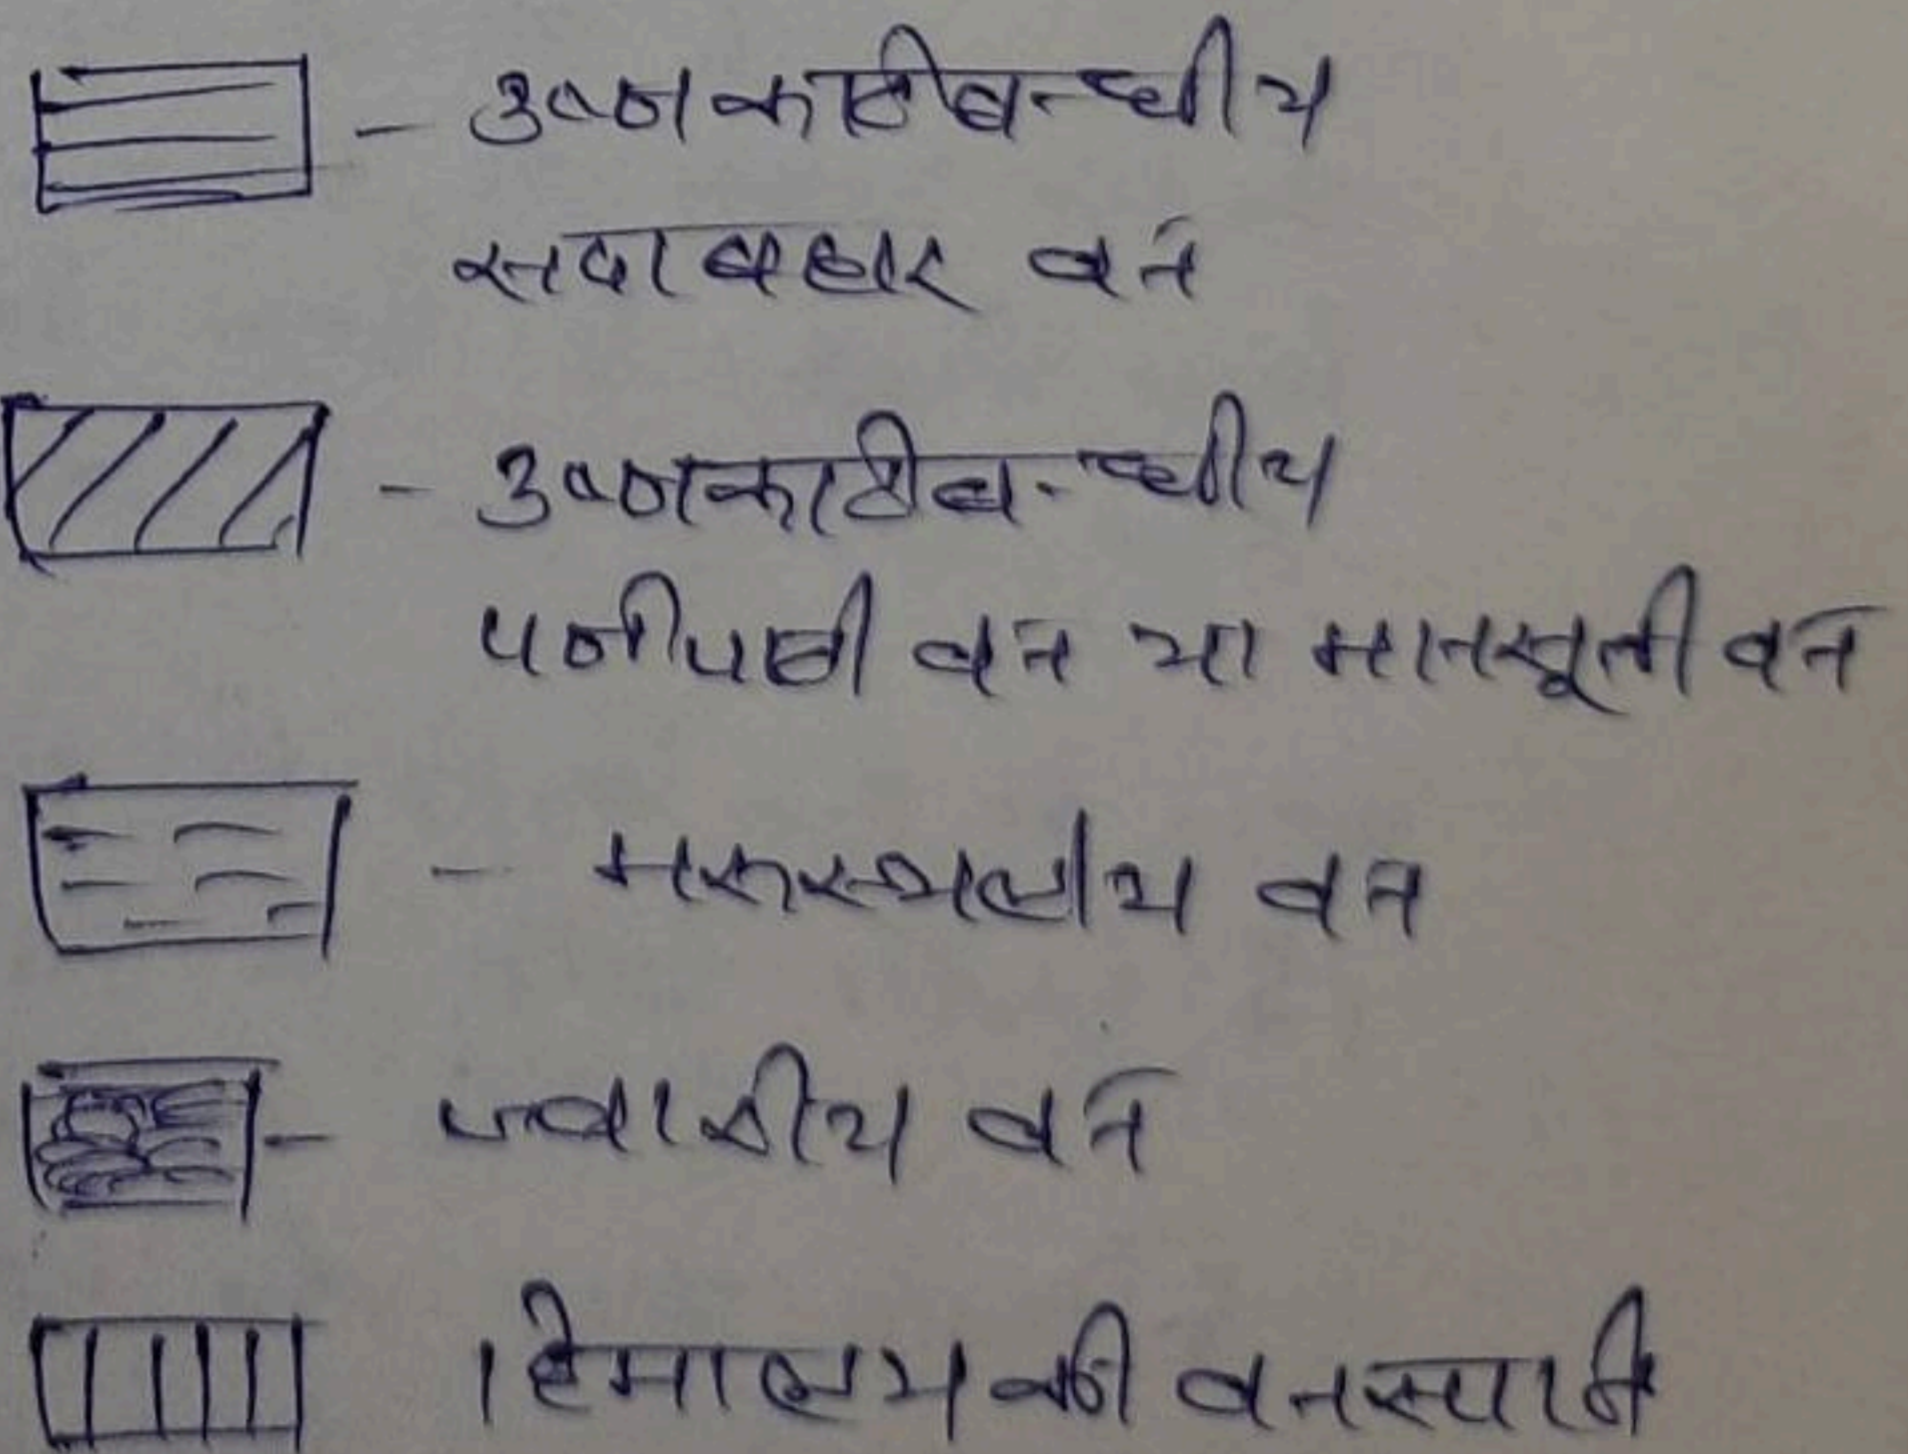 - उष्णकटीबन्धीय
सदाबहार वन
- उष्णकाटीबन्धीय
पर्णपाती वन या मानसूनी वन
- मरुस्थलीय वन
- ज्वारीय वन
हिमालय की वनस्पाति